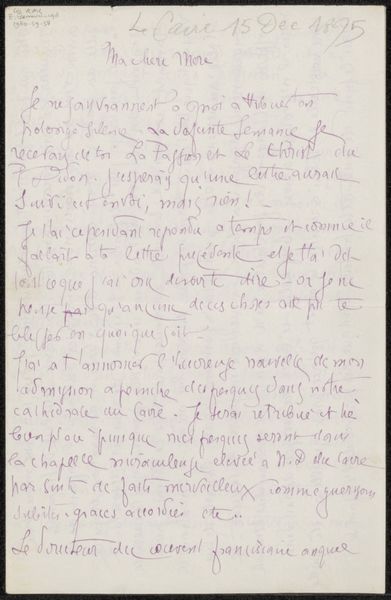 Le Caire 15 Dec 1895
Ma chere Mere
Je ne sais vraiment a quoi attribuer ton
prolongé silence. La semaine je
recevais de toi La Passion et Le Christ du
P. Didon. J'esperais qu'une lettre aurait
suivi cet envoi, mais rien!
Je t'ai cependant répondu a temps et comme il
fallait a ta lettre précédente et je t'ai dit
tout ce que j'ai cru devoir te dire - or je ne
pense pas qu'aucune de ces choses ait pu te
blesser en quoi que soit -
J'ai a t'annoncer l'heureuse nouvelle de mon
admission a peindre des fresques dans notre
cathédrale au Caire. Je serai retribué et tres
bien placé puisque mes fresques seront dans
la chapelle miraculeuse elevée a N.D. du Caire
par suite de faits merveilleux comme guerisons
subites, graces accordées etc..
Le directeur du couvent franciscain auquel